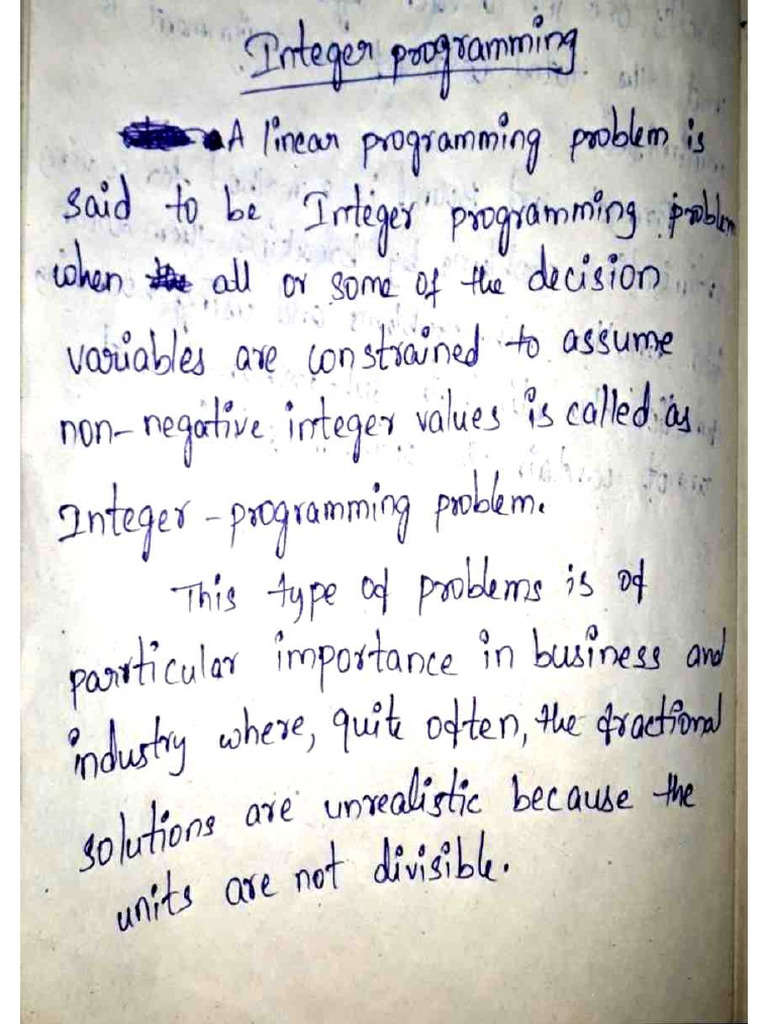 Integer programming
A linear programming problem is
said to be Integer programming problem
when all or some of the decision
variables are constrained to assume
non-negative integer values is called as
Integer-programming problem.
This type of problems is of
parrticular importance in business and
industry where, quite often, the fractional
solutions are unrealistic because the
units are not divisible.